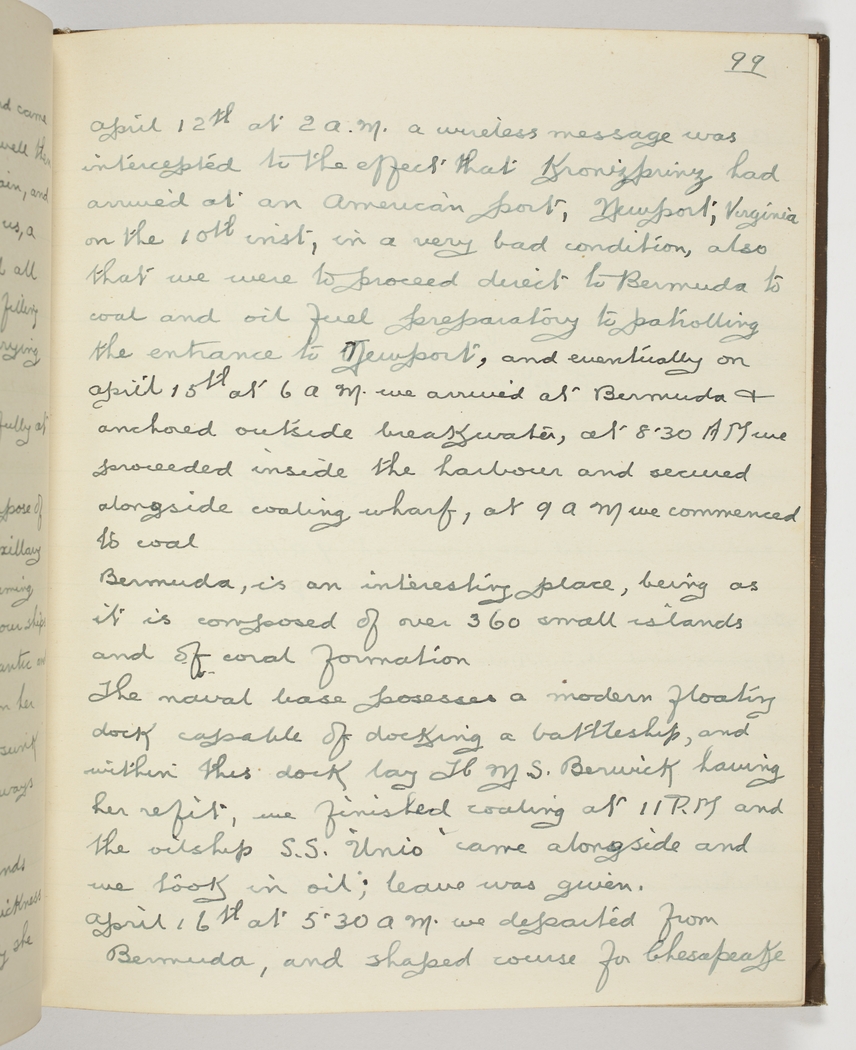 99
April 12th at 2 a.m. a wireless message was
intercepted to the effect that Kronizprinz had
arrived at an American port, Newport, Virginia
on the 10th inst, in a very bad condition, also
that we were to proceed direct to Bermuda to
coal and oil fuel preparatory to patrolling
the entrance to Newport, and eventually on
April 15th at 6 a m. we arrived at Bermuda &
anchored outside breakwater, at 8.30 AM we
proceeded inside the harbour and secured
alongside coaling wharf, at 9 a m we commenced
to coal
Bermuda, is an interesting place, being as
it is composed of over 360 small islands
and of coral formation
The naval base posesses a modern floating
dock capable of docking a battleship, and
within this dock lay H M S. Berwick having
her refit, we finished coaling at 11 P.M and
the oilship S.S. "Unio" came alongside and
we took in oil; leave was given.
April 16th at 5.30 a m. we departed from
Bermuda, and shaped course for Chesapeake
nd came
well the
ain, and
us, a
all
filling
fully at
pose of
xillary
our ships
antic
n her
sunk
ways
nds
ickness
y she